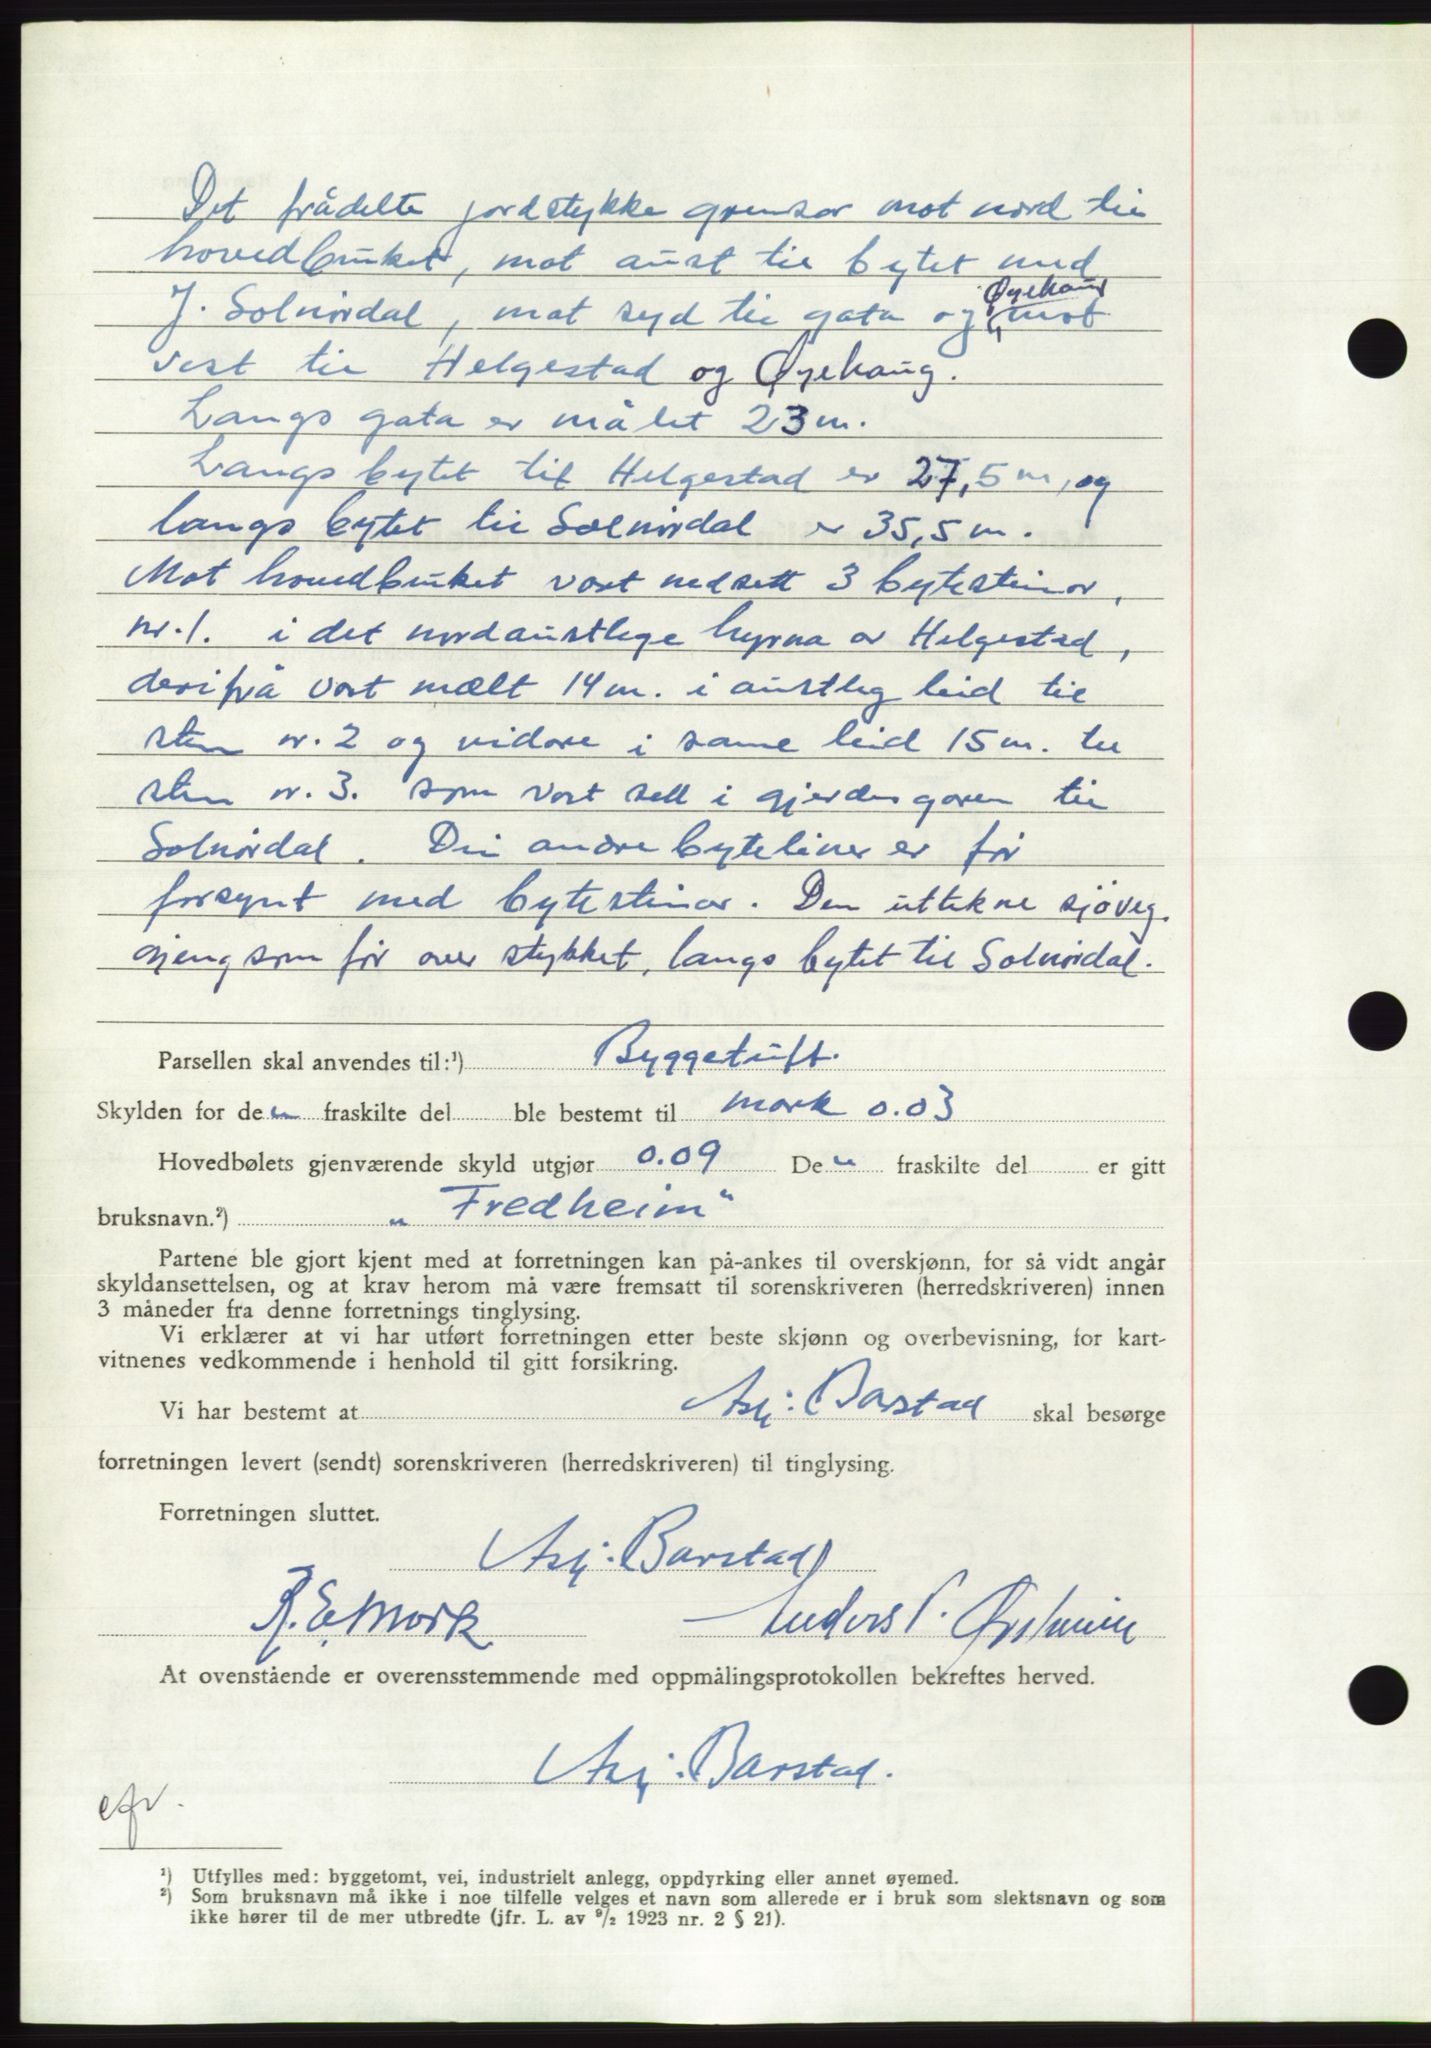 Det frådelte jordstykke grensar mot nord til
hovedbruket, mot aust til bytet med
J. Solnørdal, mot syd til gata og Øyehaug mot
vest til Helgestad og Øyehaug.
Langs gata er målet 23 m.
Langs bytet til Helgestad er 27,5 m, og
langs bytet til Solnørdal er 35,5 m.
Mot hovedbruket vart nedsett 3 bytesteinar,
nr. 1. i det nordaustlege hyrna av Helgestad,
derifrå vart mælt 14 m. i austleg leid til
sten nr. 2 og vidare i same leid 15 m. til
sten nr. 3. som vart sett i gjerdesgaren til
Solnørdal. Dei andre byteliner er før
forsynt med bytesteinar. Den uttekne sjøveg
gjeng som før over stykket, langs bytet til Solnørdal.
Parsellen skal anvendes til:¹) Byggetuft.
Skylden for den fraskilte del ble bestemt til mark 0.03
Hovedbølets gjenværende skyld utgjør 0.09 Den fraskilte del er gitt
bruksnavn.²) „Fredheim"
Partene ble gjort kjent med at forretningen kan på-ankes til overskjønn, for så vidt angår
skyldansettelsen, og at krav herom må være fremsatt til sorenskriveren (herredskriveren) innen
3 måneder fra denne forretnings tinglysing.
Vi erklærer at vi har utført forretningen etter beste skjønn og overbevisning, for kart-
vitnenes vedkommende i henhold til gitt forsikring.
Vi har bestemt at Asbj: Barstad skal besørge
forretningen levert (sendt) sorenskriveren (herredskriveren) til tinglysing.
Forretningen sluttet.
Barstad
R. E. Mork Anders P.
At ovenstående er overensstemmende med oppmålingsprotokollen bekreftes herved.
Barstad.
¹) Utfylles med: byggetomt, vei, industrielt anlegg, oppdyrking eller annet øyemed.
²) Som bruksnavn må ikke i noe tilfelle velges et navn som allerede er i bruk som slektsnavn og som
ikke hører til de mer utbredte (jfr. L. av 9/2 1923 nr. 2 § 21).